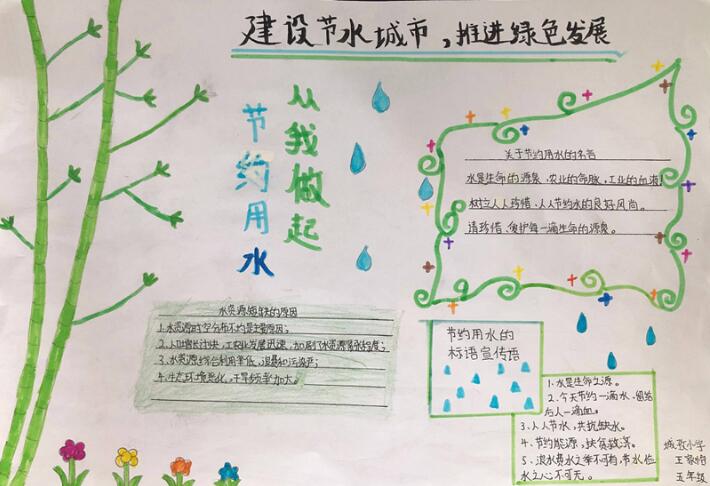 建设节水城市，推进绿色发展
从我做起
节约用水
关于节约用水的名言
水是生命的源泉、农业的命脉、工业的血液！
树立人人珍惜、人人节约水的良好风尚。
请珍惜、保护每一滴生命的源泉。
水资源短缺的原因
1.水资源时空分布不均是主要原因；
2.人口增长过快，工农业发展迅速，加剧了水资源紧张程度；
3.水资源综合利用率低、浪费和污染严；
4.生态环境恶化，干旱频率加大。
节约用水的
标语宣传语
1.水是生命之源。
2.今天节约一滴水，留给
后人一滴血。
3.人人节水，共抗缺水。
4.节约能源，扶贫救济。
5.浪水费水之举不可有，节水惜
水之心不可无。
小学
王
五年级